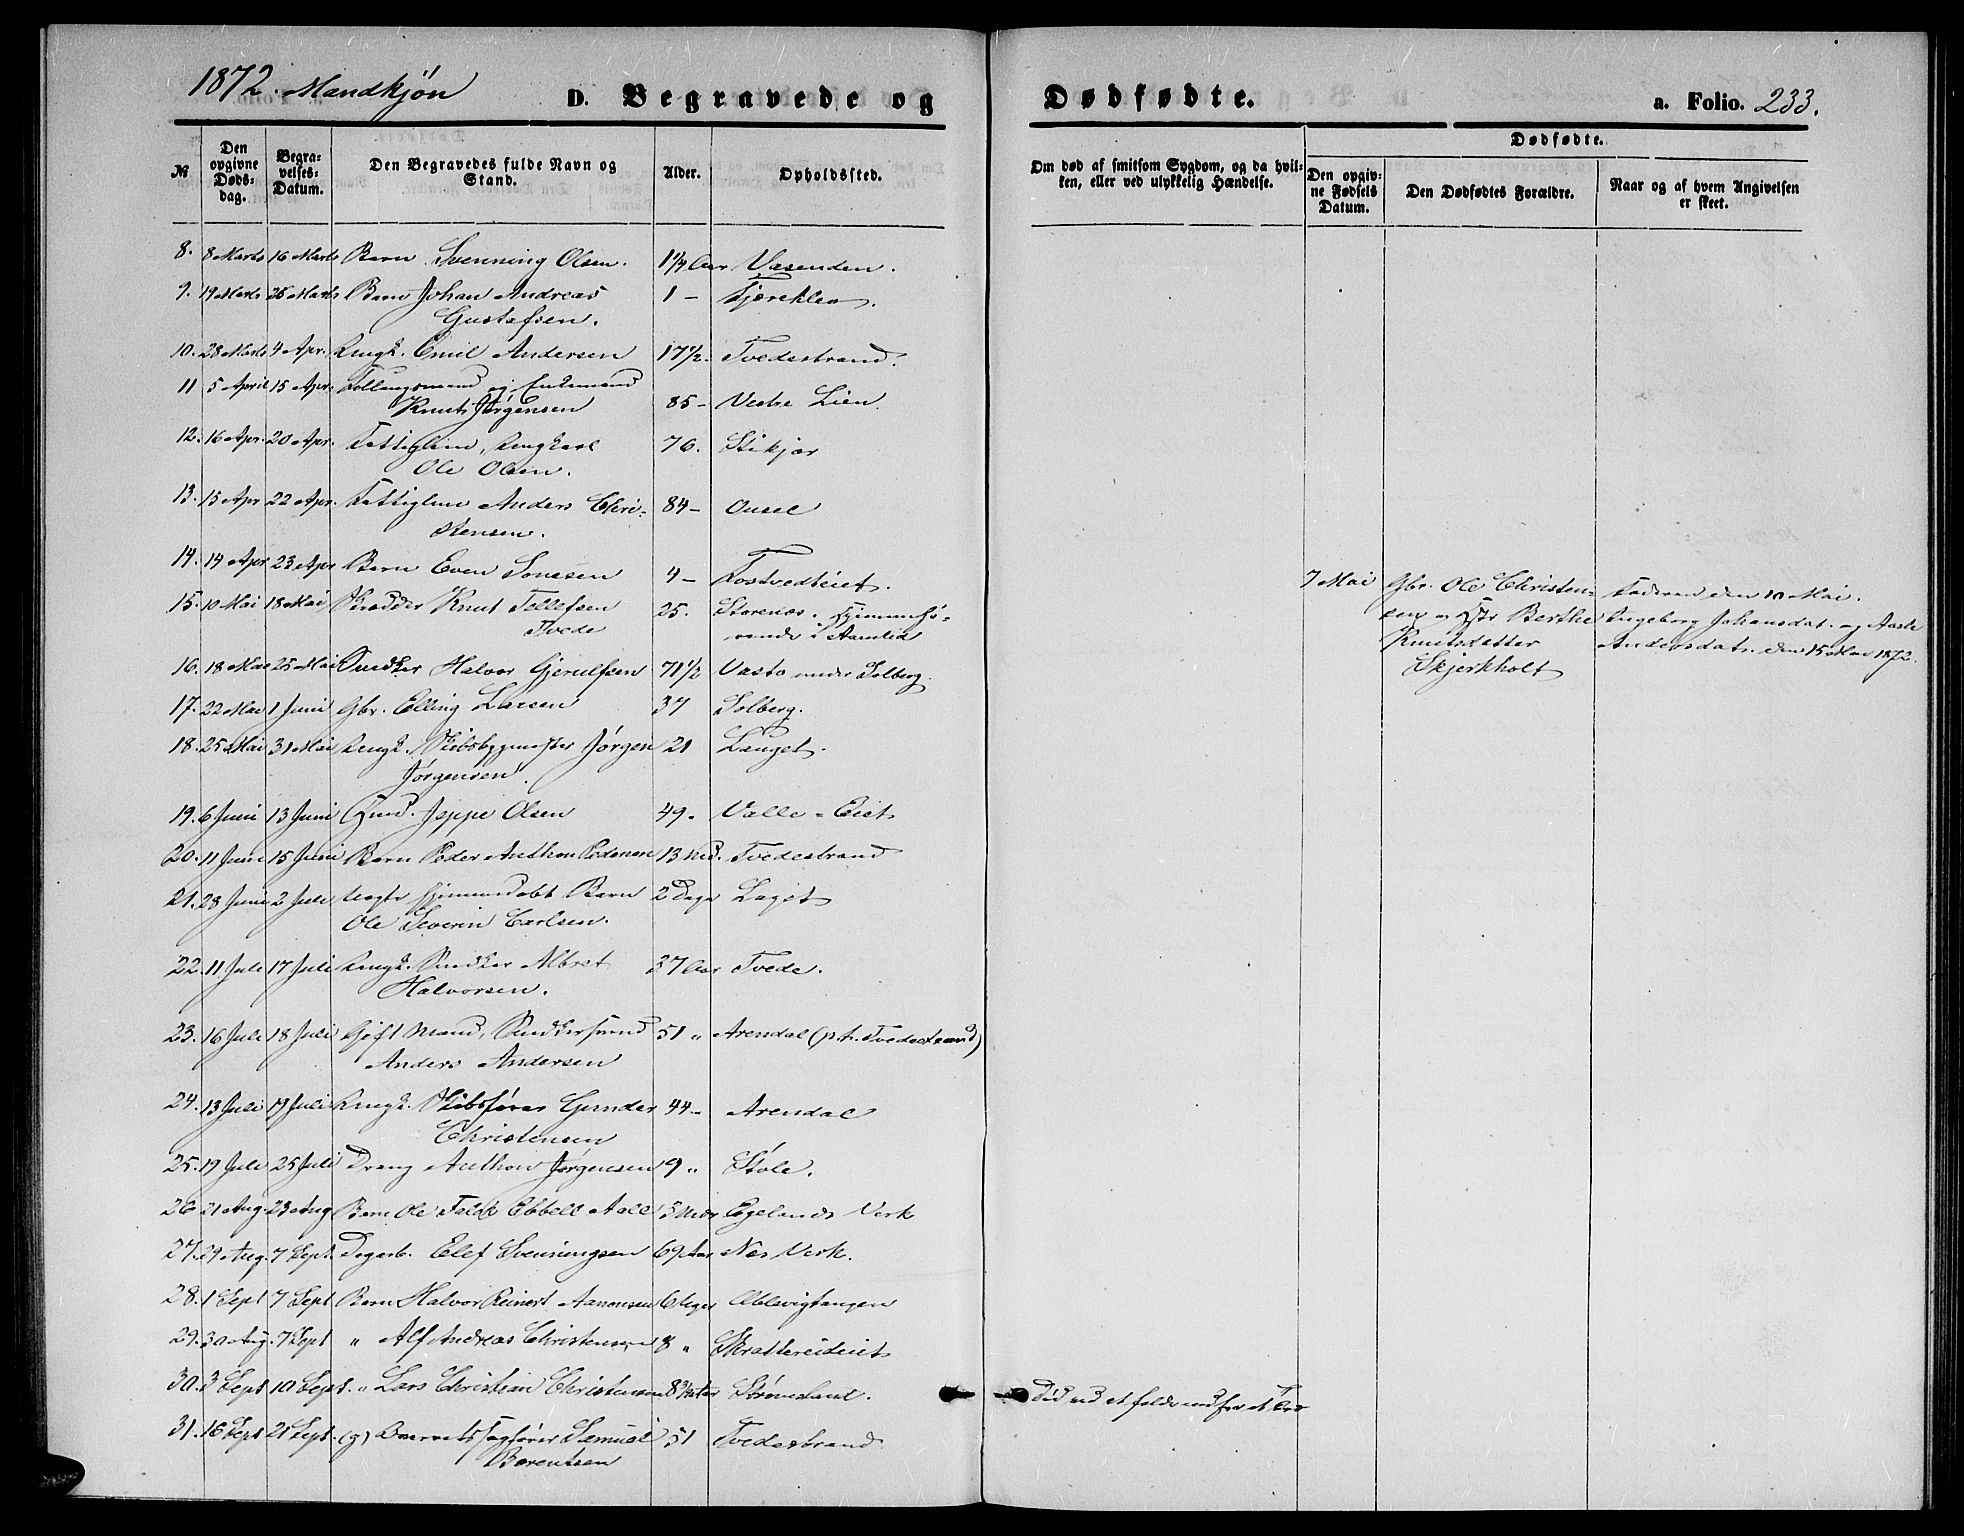 1872. Mandkjøn
D. Begravede og
Dødfødte.
a. Folio. 233.
№
Den opgivne Døds-dag.
Begra-velses-Datum.
Den Begravedes fulde Navn og Stand.
Alder.
Opholdssted.
Om død af smitsom Sygdom, og da hvil-ken, eller ved ulykkelig Hændelse.
Dødfødte.
Den opgiv-ne Fødsels Datum.
Den Dødfødtes Forældre.
Naar og af hvem Angivelsen er skeet.
8. 8 Marts 16 Marts Barn Svenning Olsen. 1¼ Aar Vasenden.
9. 19 Marts 26 Marts Barn Johan Andreas 1 - Fjærekleo.
Gustafsen.
10. 28 Marts 4 Apr. Ungk. Emil Andersen 17½. Tvedestrand.
11 5 April 15 Apr. Follaugsmand og Enkemand
Knut Jørgensen 85 - Vestre Lien.
12. 16 Apr. 20 Apr. Fattiglem, Ungkarl 76. Stikjær
Ole Olsen.
13. 15 Apr 22 Apr. Fattiglem Anders Chri- 84 - Ousel
stensen.
14. 14 Apr 23 Apr Barn Even Sonesen 4 - Fostvedteiet.
15. 10 Mai 18 Mai Skrædder Knut Tellefsen 25. Storenæs. Hjemmehø-
Tvede rende i Aamlid
16. 18 Mai 25 Mai Snedker Halvor Gjerulfsen 71½ Vasto under Solberg.
17. 22 Mai 1 Juni Gbr. Elling Larsen 34 Solberg.
18. 25 Mai 31 Mai Ungk. Skibsbygmester Jørgen 21 Lauget.
Jørgensen.
19. 6 Juni 13 Juni Husmd. Jeppe Olsen 49. Valle-Eiet
20. 11 Juni 15 Juni Barn Peder Anthon Pedersen 13 Md. Tvedestrand
21. 28 Juni 2 Juli Uægte hjemmedøbt Barn 2 Dage Laget
Ole Severin Carlsen.
22. 11 Juli 17 Juli Ungk. Snedker Albret 27 Aar Tvede.
Halvorsen.
23. 16 Juli 18 Juli Gift Mand, Snedkersvend 51 " Arendal (p.t. Tvedestrand)
Anders Andersen
24. 13 Juli 19 Juli Ungk. Skibsfører Gunder 44 - Arendal
Christensen
25. 19 Juli 25 Juli Dreng Anthon Jørgensen 9 " Støle.
26 21 Aug. 23 Aug Barn Ole Falck Ebbell Aall 5 Mdr Egelands Verk
27. 29 Aug. 7 Sept. Dagarb. Elef Svenningsen 69 Aar Næs Verk.
28. 1 Sept 7 Sept Barn Halvor Reinert Aanonsen 6 Uger Ablevigtangen
29. 30 Aug. 7 Sept " Alf Andreas Christensen 8 " Skattereideiet
30. 3 Sept 10 Sept. " Lars Christian Christensen 8¾ Aar Strømsland.
Død ved at falde ned fra et Træ
31. 16 Sept 21 Sept. (g) Overretssagfører Samuel 51 Tvedestrand
Børentsen
7 Mai Gbr. Ole Christen- Faderen den 10 Mai.
sen og Hstr Berthe Ingeborg Johansdat. og Aasle
Knutsdatter Andersdatr. den 15 Mai 1872.
Skjerkholt